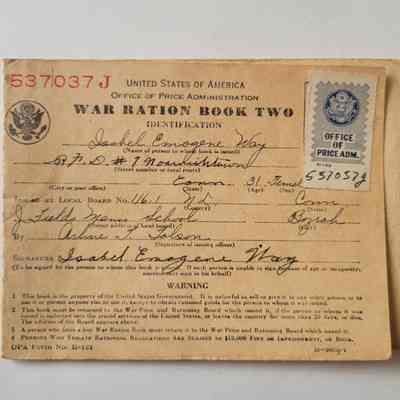 537037 J
UNITED STATES OF AMERICA
OFFICE OF PRICE ADMINISTRATION
WAR RATION BOOK TWO
IDENTIFICATION
OFFICE
OF
PRICE ADM.
537037J
Isabel Emogene Way
(Name of person to whom book is issued)
R.F.D. #7
(Street number or rural route)
Conn 31
(City or post office) (State) (Age) (Sex)
ISSUED BY LOCAL BOARD No. 116.1 N.L. Conn
Fields School Bozrah
(Street address of local board)
By
(Signature of issuing officer)
SIGNATURE Isabel Emogene Way
(To be signed by the person to whom this book is issued. If such person is unable to sign because of age or incapacity, another may sign in his behalf)
WARNING
1 This book is the property of the United States Government. It is unlawful to sell or give it to any other person, or to use it or permit anyone else to use it, except to obtain rationed goods for the person to whom it was issued.
2 This book must be returned to the War Price and Rationing Board which issued it, if the person to whom it was issued is inducted into the armed services of the United States, or leaves the country for more than 30 days, or dies. The address of the Board appears above.
3 A person who finds a lost War Ration Book must return it to the War Price and Rationing Board which issued it.
4 PERSONS WHO VIOLATE RATIONING REGULATIONS ARE SUBJECT TO $10,000 FINE OR IMPRISONMENT, OR BOTH.
OPA Form No. R-121